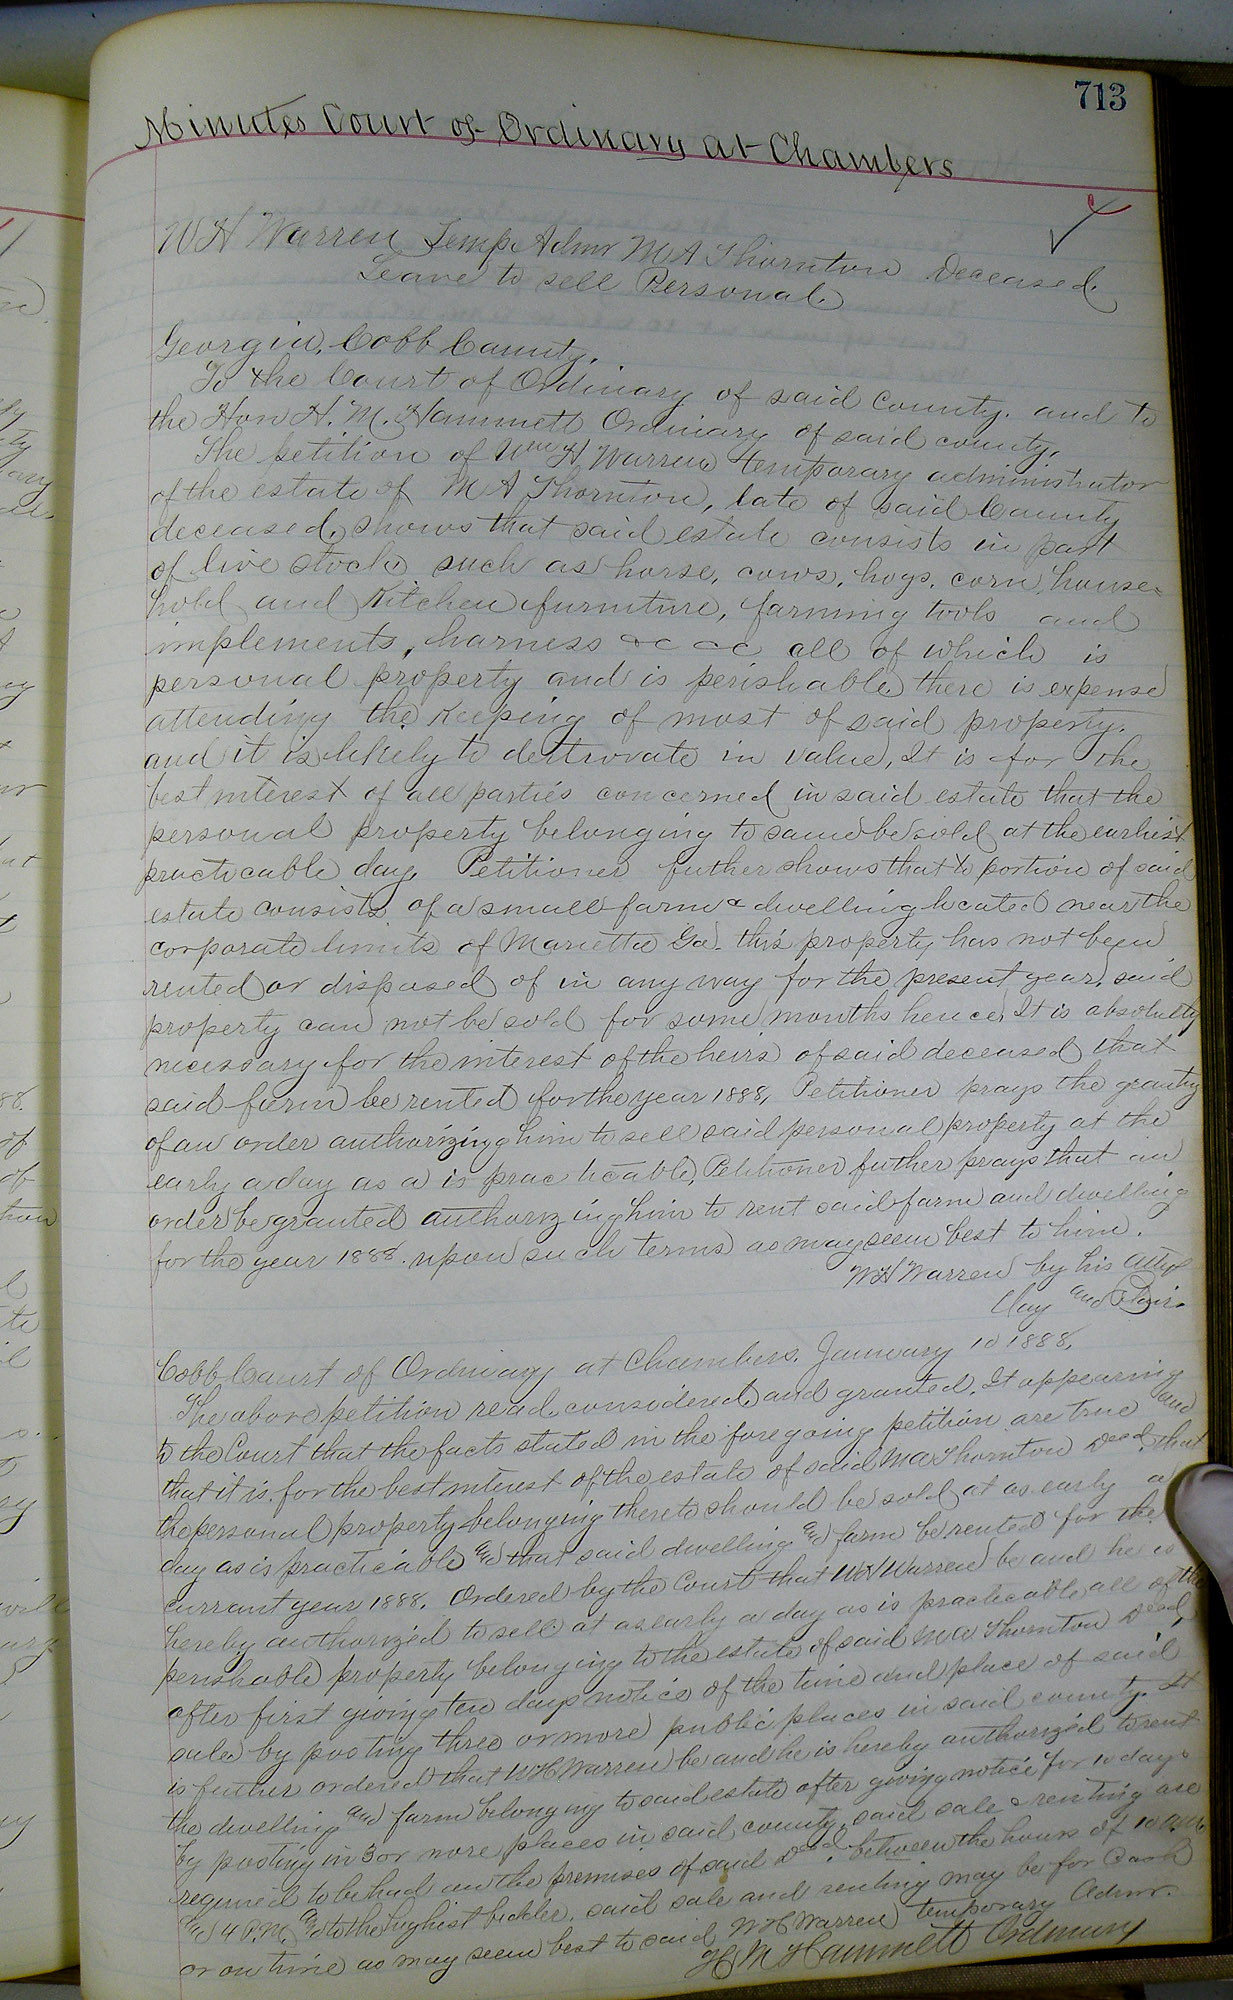 713
Minutes Court of Ordinary at Chambers
W H Warren Temp Admr M A Thornton Deceased.
Leave to sell Personal.
Georgia, Cobb County.
To the Court of Ordinary of said County. and to
the Hon H. M. Hammett Ordinary of said county.
The petition of Wm H Warren temporary administrator
of the estate of M A Thornton, late of said County
deceased, shows that said estate consists in part
of live stock such as horse, cows, hogs, corn, house-
hold and Kitchen furniture, farming tools and
implements, harness &c &c all of which is
personal property and is perishable there is expense
attending the keeping of most of said property.
and it is likely to detiorate in value, It is for the
best interest of all parties concerned in said estate that the
personal property belonging to same be sold at the earliest
practicable day. Petitioner futher shows that a portion of said
estate consists of a small farm & dwelling located near the
corporate limits of Marietta Ga. this property has not been
rented or disposed of in any way for the present year, said
property can not be sold for some months hence, It is absolutly
necessary for the interest of the heirs of said deceased that
said farm be rented for the year 1888, Petitioner prays the granting
of an order authorizing him to sell said personal property at the
early a day as a is practicable, Petitioner futher prays that an
order be granted authorizing him to rent said farm and dwelling
for the year 1888. upon such terms as may seem best to him.
W H Warren by his Attys
Clay and Blair.
Cobb Court of Ordinary at Chambers. January 10 1888.
The above petition read, considered, and granted. It appearing
to the Court that the facts stated in the foregoing petition are true and
that it is for the best interest of the estate of said M A Thornton Decd. that
the personal property belonging thereto should be sold at as early a
day as is practicable and that said dwelling and farm be rented for the
currant year 1888. Ordered by the Court that W H Warren be and he is
hereby authorized to sell at as early a day as is practicable all of the
perishable property belonging to the estate of said M A Thornton Decd,
after first giving ten days notice of the time and place of said
sale by posting three or more public places in said county. It
is futher ordered that W H Warren be and he is hereby authorized to rent
the dwelling and farm belonging to said estate after giving notice for 10 days
by posting in 3 or more places in said county, said sale & renting are
required to be had on the premises of said Decd. between the hours of 10 A.M.
and 4 P.M. and to the highest bidder. said sale and renting may be for Cash
or on time as may seem best to said W H Warren temporary Admr.
H M Hammett Ordinary